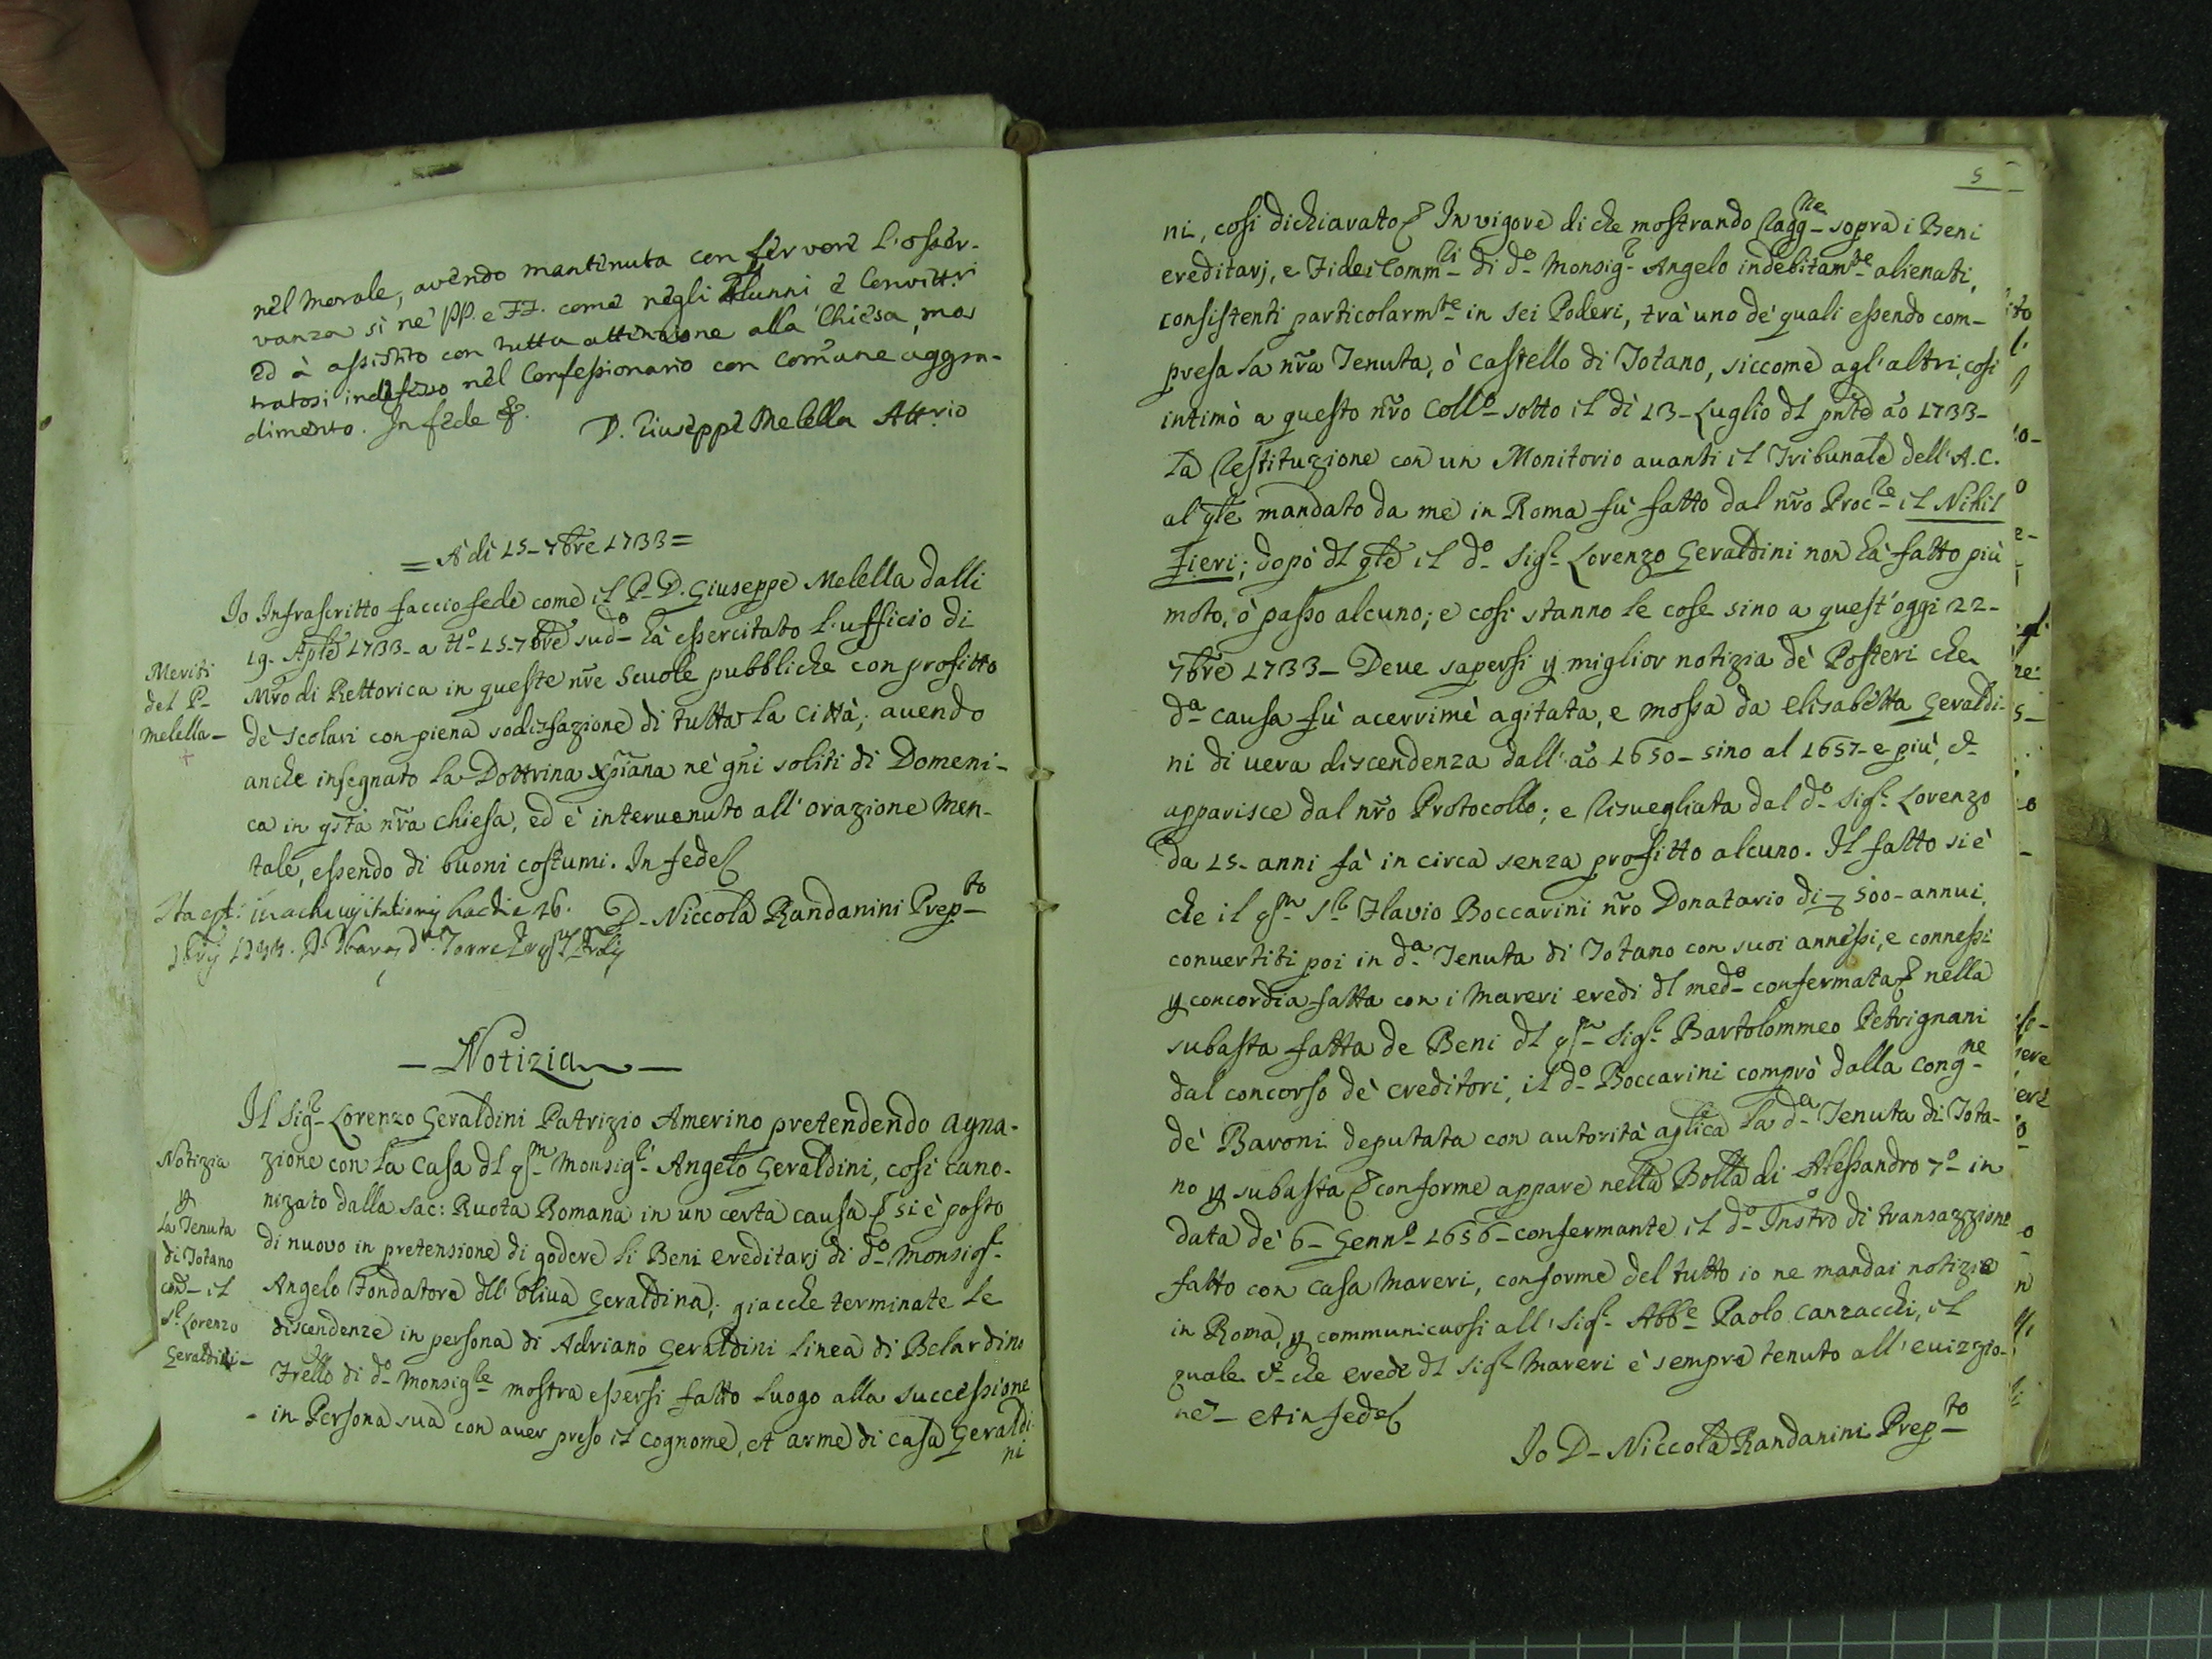 nel morale, avendo mantenuta con fervore l'osser-
vanza sì ne' PP. e FF. come negli Alunni e Convitt.ri
ed à assistito con tutta attenzione alla Chiesa, mos
tratosi indefesso nel Confessionario con comune aggra-
dimento. In fede &.
D. Giuseppe Melella Att.rio
= A dì 15- 7bre 1733 =
Io Infrascritto faccio fede come il P- D. Giuseppe Melella dalli
19- Aple 1733- a tt.o- 15-7bre sud.o hà essercitato l'ufficio di
Mro di Rettorica in queste nre Scuole pubbliche con profitto
de' scolari con piena sodisfazione di tutta la Città; avendo
anche insegnato la Dottrina xpiana ne' gni soliti di Domeni-
ca in qsta nra chiesa, ed è intervenuto all'orazione men-
tale, essendo di buoni costumi. In fede
D- Niccola Randanini Prep.to
Meriti
del P-
Melella-
Ita est: in actu visitationis hac die 26.
7bris 1733.
- Notizia -
Il Sig.r Lorenzo Geraldini Patrizio Amerino pretendendo agna-
zione con la Casa dl qm Monsig.r Angelo Geraldini, così cano-
nizato dalla Sac: Ruota Romana in un certa causa si è posto
di nuovo in pretensione di godere li Beni ereditarj di d.o Monsig.r
Angelo Fondatore dll' Oliva Geraldina; giacche terminate le
discendenze in persona di Adriano Geraldini linea di Belardino
Frello di d.o Monsig.re mostra essersi fatto luogo alla successione
in Persona sua con aver preso il cognome, et arme di casa Geraldi-
ni
Notizia
p
la Tenuta
di Totano
con- il
S.r Lorenzo
Geraldini-
5
ni, così dichiarato In vigore di che mostrando Ragg.ne sopra i Beni
ereditarj, e Fideicomm.ri di d.o Monsig.r Angelo indebitam.te alienati,
consistenti particolarm.te in sei Poderi, trà uno de' quali essendo com-
presa la nra Tenuta, ò Castello di Totano, siccome agl'altri, così
intimò a questo nro Coll.o sotto il dì 13- Luglio dl pnte ao 1733-
la Restituzione con un Monitorio avanti il Tribunale dell'A.C.
al qle mandato da me in Roma fù fatto dal nro Proc.re il Nihil
Fieri; dopò dl qle il d.o Sig.r Lorenzo Geraldini non hà fatto più
moto, ò passo alcuno; e così stanno le cose sino a quest'oggi 22-
7bre 1733- Deve sapersi p miglior notizia de' Posteri che
d.a causa fù acerrime agitata, e mossa da Elisabetta Geraldi-
ni di vera discendenza dall'ao 1650- sino al 1657- e più, c-
apparisce dal nro Protocollo; e Risvegliata dal d.o Sig.r Lorenzo
da 15- anni fà in circa senza profitto alcuno. Il fatto si è
che il qm S.r Flavio Boccarini nro Donatario di 500- annui,
convertiti poi in d.a Tenuta di Totano con suoi annessi, e connessi
p concordia fatta con i Mareri eredi dl med.o confermata nella
subasta fatta de Beni dl qm Sig.r Bartolommeo Petrignani
dal concorso de' creditori, il d.o Boccarini comprò dalla Cong.ne
de' Baroni deputata con autorità aplica la d.a Tenuta di Tota-
no p subasta conforme appare nella Bolla di Alessandro 7.o in
data de' 6- Genn.o 1656- confermante il d.o Instro di transazzione
fatto con casa Mareri, conforme del tutto io ne mandai notizia
in Roma, p communicarsi all'Sig.r Abb.e Paolo Canzacchi, il
quale c- che erede dl Sig.r Mareri è sempre tenuto all'evizzio-
ne- et in fede
Io D- Niccola Randanini Prep.to